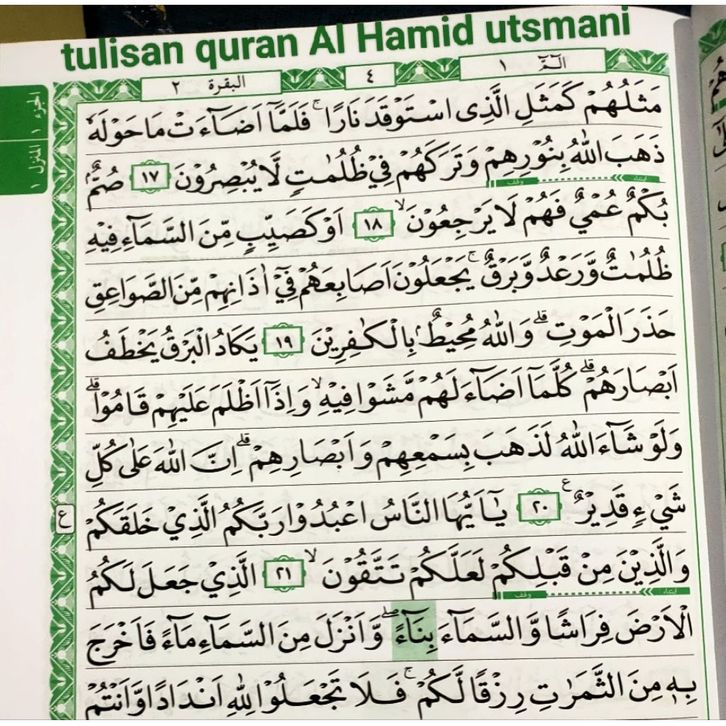 tulisan quran Al Hamid utsmani
البقرة ٢ ٤ الٓمّٓ ١
الجزء ١ المنزل ١
مَثَلُهُمْ كَمَثَلِ الَّذِى اسْتَوْقَدَ نَارًا ۚ فَلَمَّآ اَضَآءَتْ مَا حَوْلَهٗ
ذَهَبَ اللّٰهُ بِنُوْرِهِمْ وَتَرَكَهُمْ فِيْ ظُلُمٰتٍ لَّا يُبْصِرُوْنَ ١٧ صُمٌّ
بُكْمٌ عُمْيٌ فَهُمْ لَا يَرْجِعُوْنَ ۙ ١٨ اَوْ كَصَيِّبٍ مِّنَ السَّمَآءِ فِيْهِ
ظُلُمٰتٌ وَّرَعْدٌ وَّبَرْقٌ ۚ يَجْعَلُوْنَ اَصَابِعَهُمْ فِيْٓ اٰذَانِهِمْ مِّنَ الصَّوَاعِقِ
حَذَرَ الْمَوْتِ ۗ وَاللّٰهُ مُحِيْطٌۢ بِالْكٰفِرِيْنَ ١٩ يَكَادُ الْبَرْقُ يَخْطَفُ
اَبْصَارَهُمْ ۗ كُلَّمَآ اَضَآءَ لَهُمْ مَّشَوْا فِيْهِ ۙ وَاِذَآ اَظْلَمَ عَلَيْهِمْ قَامُوْا ۗ
وَلَوْ شَآءَ اللّٰهُ لَذَهَبَ بِسَمْعِهِمْ وَاَبْصَارِهِمْ ۗ اِنَّ اللّٰهَ عَلٰى كُلِّ
شَيْءٍ قَدِيْرٌ ࣖ ٢٠ يٰٓاَيُّهَا النَّاسُ اعْبُدُوْا رَبَّكُمُ الَّذِيْ خَلَقَكُمْ
ع
وَالَّذِيْنَ مِنْ قَبْلِكُمْ لَعَلَّكُمْ تَتَّقُوْنَ ۙ ٢١ الَّذِيْ جَعَلَ لَكُمُ
الْاَرْضَ فِرَاشًا وَّالسَّمَآءَ بِنَآءً ۖ وَّاَنْزَلَ مِنَ السَّمَآءِ مَآءً فَاَخْرَجَ
بِهٖ مِنَ الثَّمَرٰتِ رِزْقًا لَّكُمْ ۚ فَلَا تَجْعَلُوْا لِلّٰهِ اَنْدَادًا وَّاَنْتُمْ